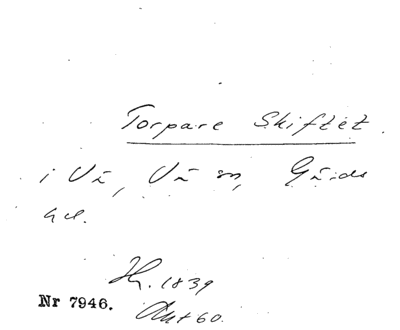 Torpare Skiftet.
i Vä, Vä sn, Gärds
hd.
Hr. 1839
Nr 7946. Akt 60.